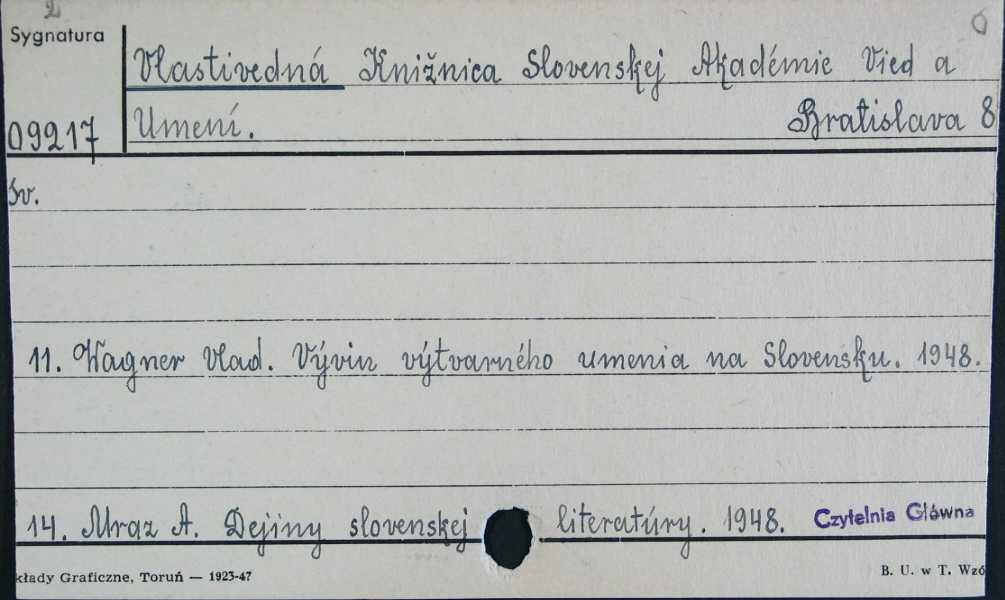 2
Sygnatura
Vlastivedná Knižnica Slovenskej Akadémie Vied a
09217 Umení. Bratislava 8
Sv.
11. Wagner Vlad. Vývin výtvarného umenia na Slovensku. 1948.
14. Mraz A. Dejiny slovenskej literatúry. 1948. Czytelnia Główna
kłady Graficzne, Toruń — 1923-47 B. U. w T. Wzó